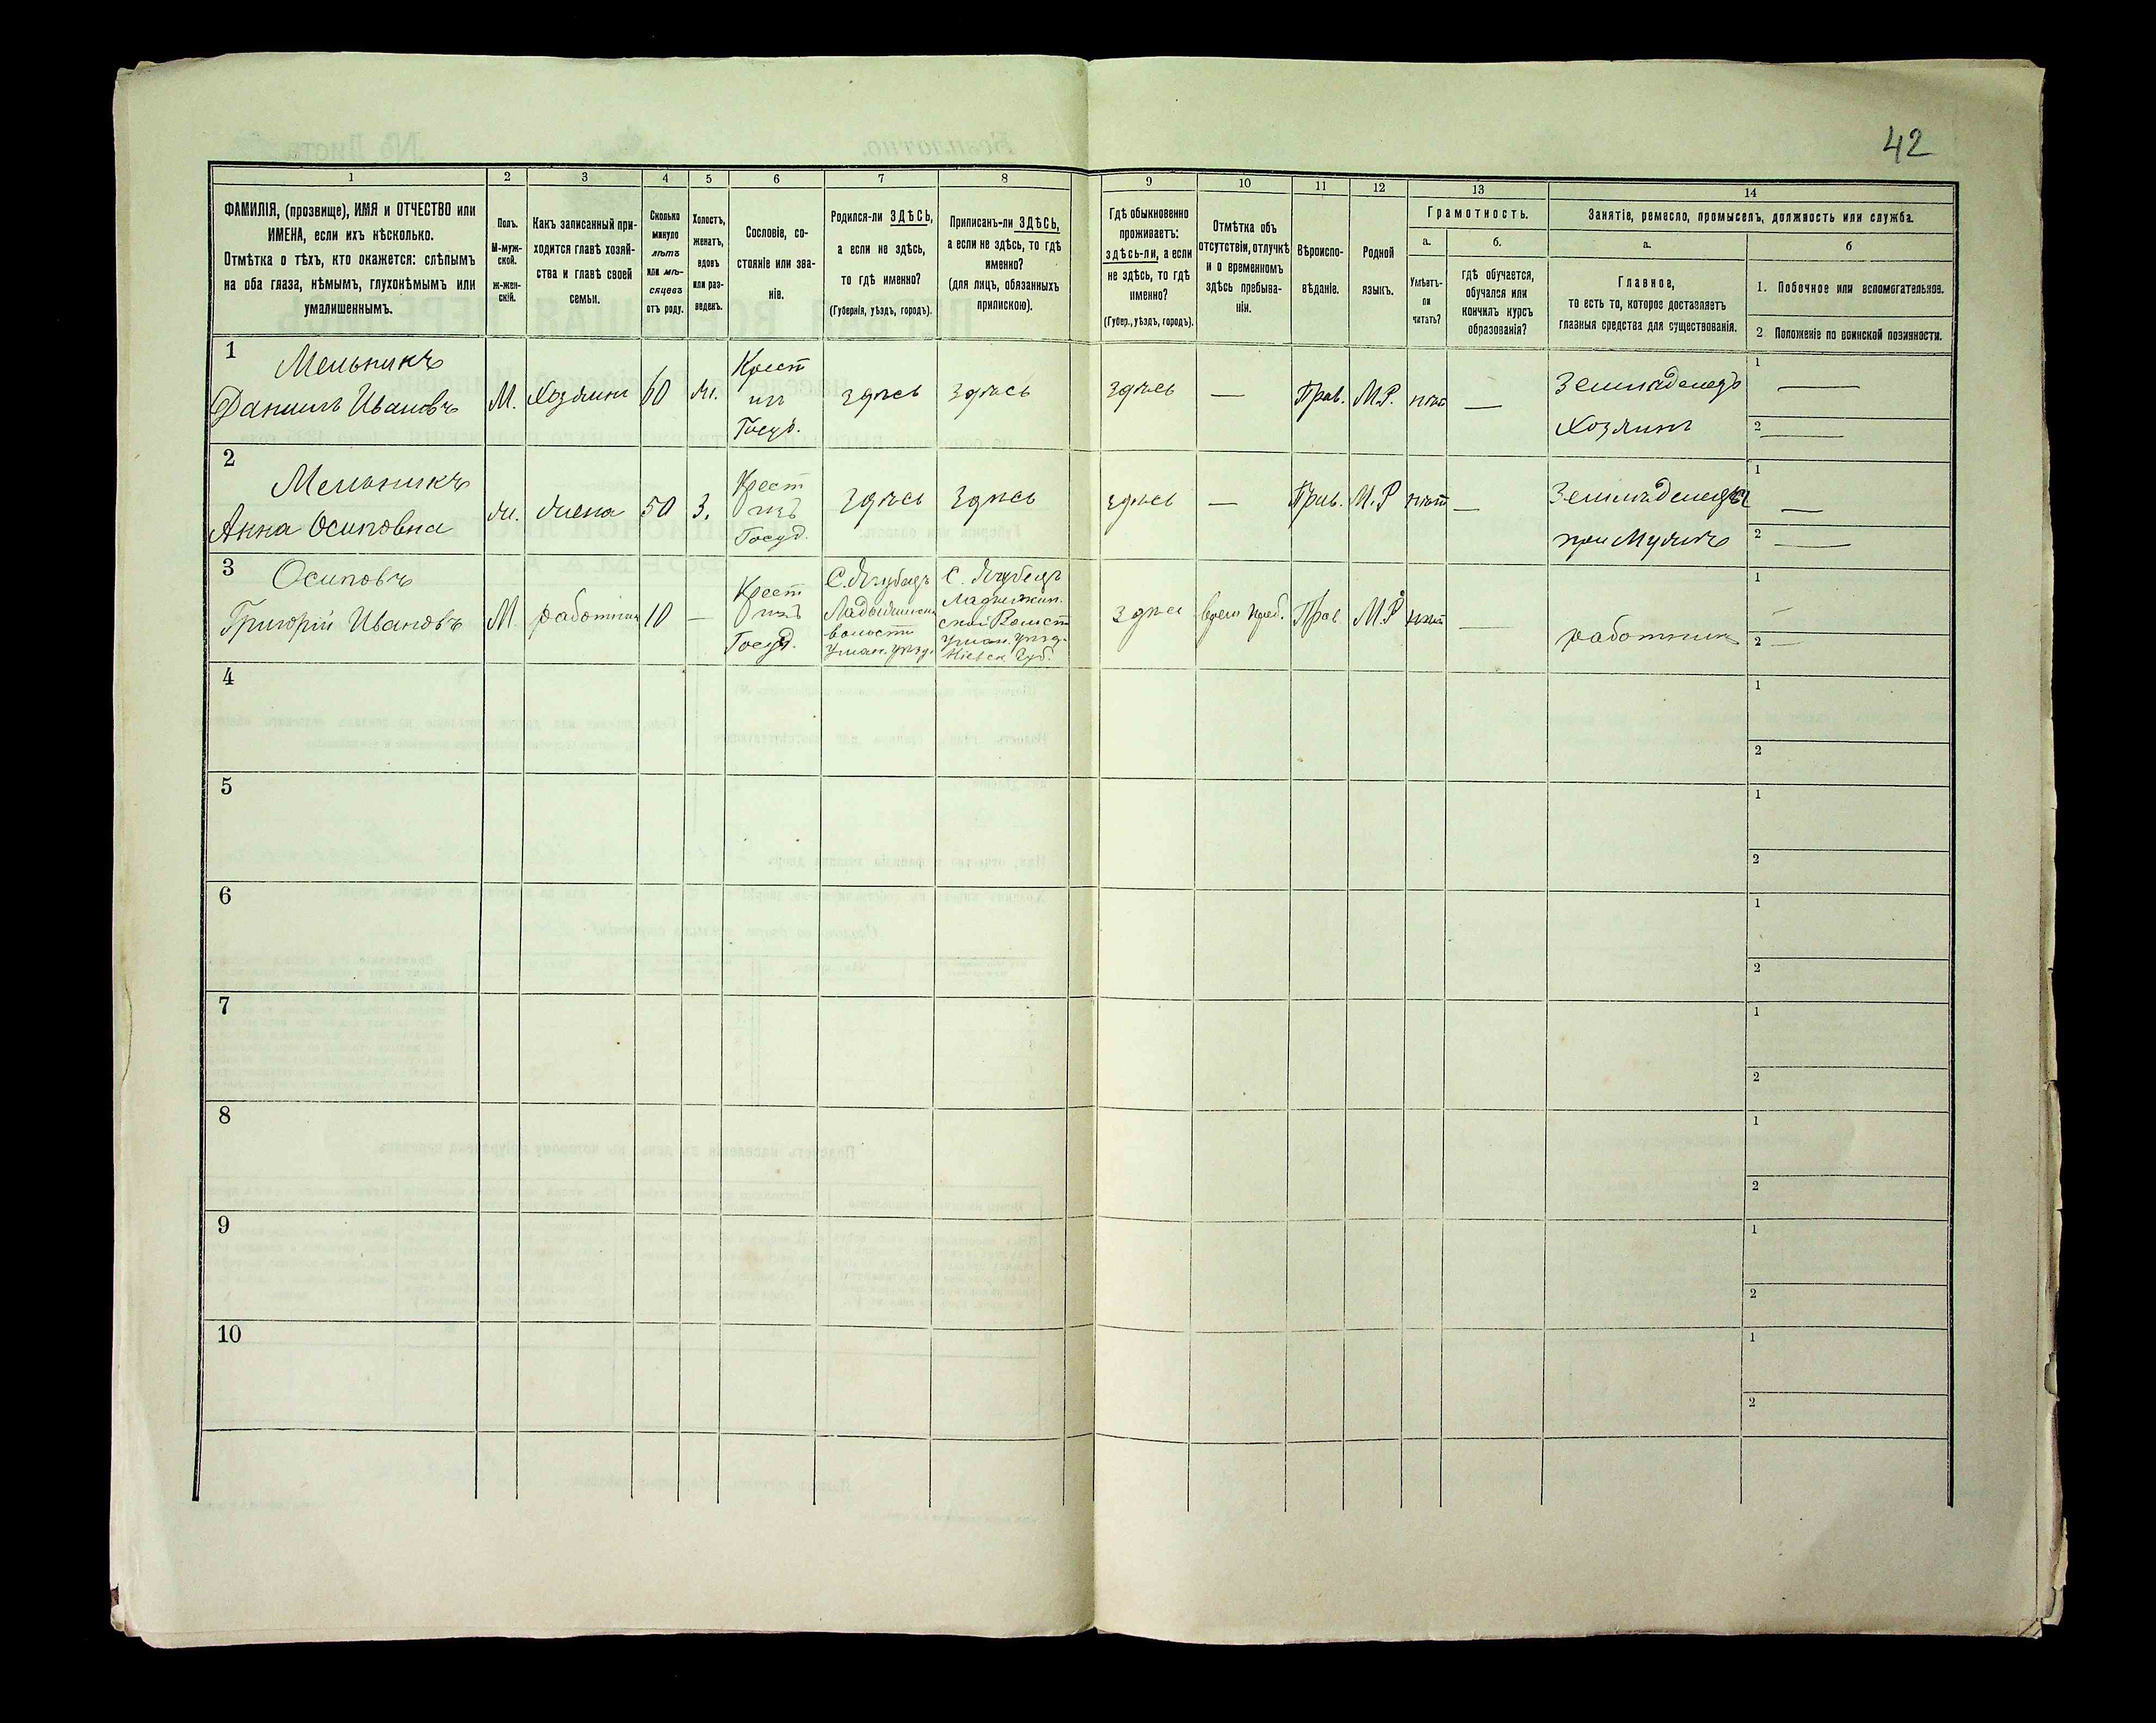 42
1 2 3 4 5 6 7 8 9 10 11 12 13 14
ФАМИЛІЯ, (прозвище), ИМЯ и ОТЧЕСТВО или
ИМЕНА, если ихъ нѣсколько.
Отмѣтка о тѣхъ, кто окажется: слѣпымъ
на оба глаза, нѣмымъ, глухонѣмымъ или
умалишеннымъ.
Полъ.
М-муж-
ской.
ж-жен-
скій.
Какъ записанный при-
ходится главѣ хозяй-
ства и главѣ своей
семьи.
Сколько
минуло
лѣтъ
или мѣ-
сяцевъ
отъ роду.
Холостъ,
женатъ,
вдовъ
или раз-
веденъ.
Сословіе, со-
стояніе или зва-
ніе.
Родился-ли ЗДѢСЬ,
а если не здѣсь,
то гдѣ именно?
(Губернія, уѣздъ, городъ).
Приписанъ-ли ЗДѢСЬ,
а если не здѣсь, то гдѣ
именно?
(для лицъ, обязанныхъ
припискою).
Гдѣ обыкновенно
проживаетъ:
здѣсь-ли, а если
не здѣсь, то гдѣ
именно?
(Губер., уѣздъ, городъ).
Отмѣтка объ
отсутствіи, отлучкѣ
и о временномъ
здѣсь пребыва-
ніи.
Вѣроиспо-
вѣданіе.
Родной
языкъ.
Грамотность.
а.
Умѣетъ-
ли
читать?
б.
гдѣ обучается,
обучался или
кончилъ курсъ
образованія?
Занятіе, ремесло, промыселъ, должность или служба.
а.
Главное,
то есть то, которое доставляетъ
главныя средства для существованія.
б
1. Побочное или вспомогательное.
2. Положеніе по воинской повинности.
1
Мельникъ
Даниилъ Ивановъ
М.
Хозяинъ
60
ж.
Крест
изъ
Госуд.
здѣсь
здѣсь
здѣсь
—
Прав.
М.Р.
нѣт
—
Земледелецъ
Хозяинъ
1 —
2 —
2
Мельникъ
Анна Осиповна
ж.
жена
50
З.
Крест
изъ
Госуд.
здѣсь
здѣсь
здѣсь
—
Прав.
М.Р
нѣт
—
при Мужѣ
1 —
2 —
3
Осиповъ
Григорій Ивановъ
М.
работник
10
—
Крест
изъ
Госуд.
волости
Уман. уѣзд.
Уман. уѣзд.
Кіевск Губ.
Прав.
М.Р
нѣт
—
работник
1 —
2 —
4
1
2
5
1
2
6
1
2
7
1
2
8
1
2
9
1
2
10
1
2